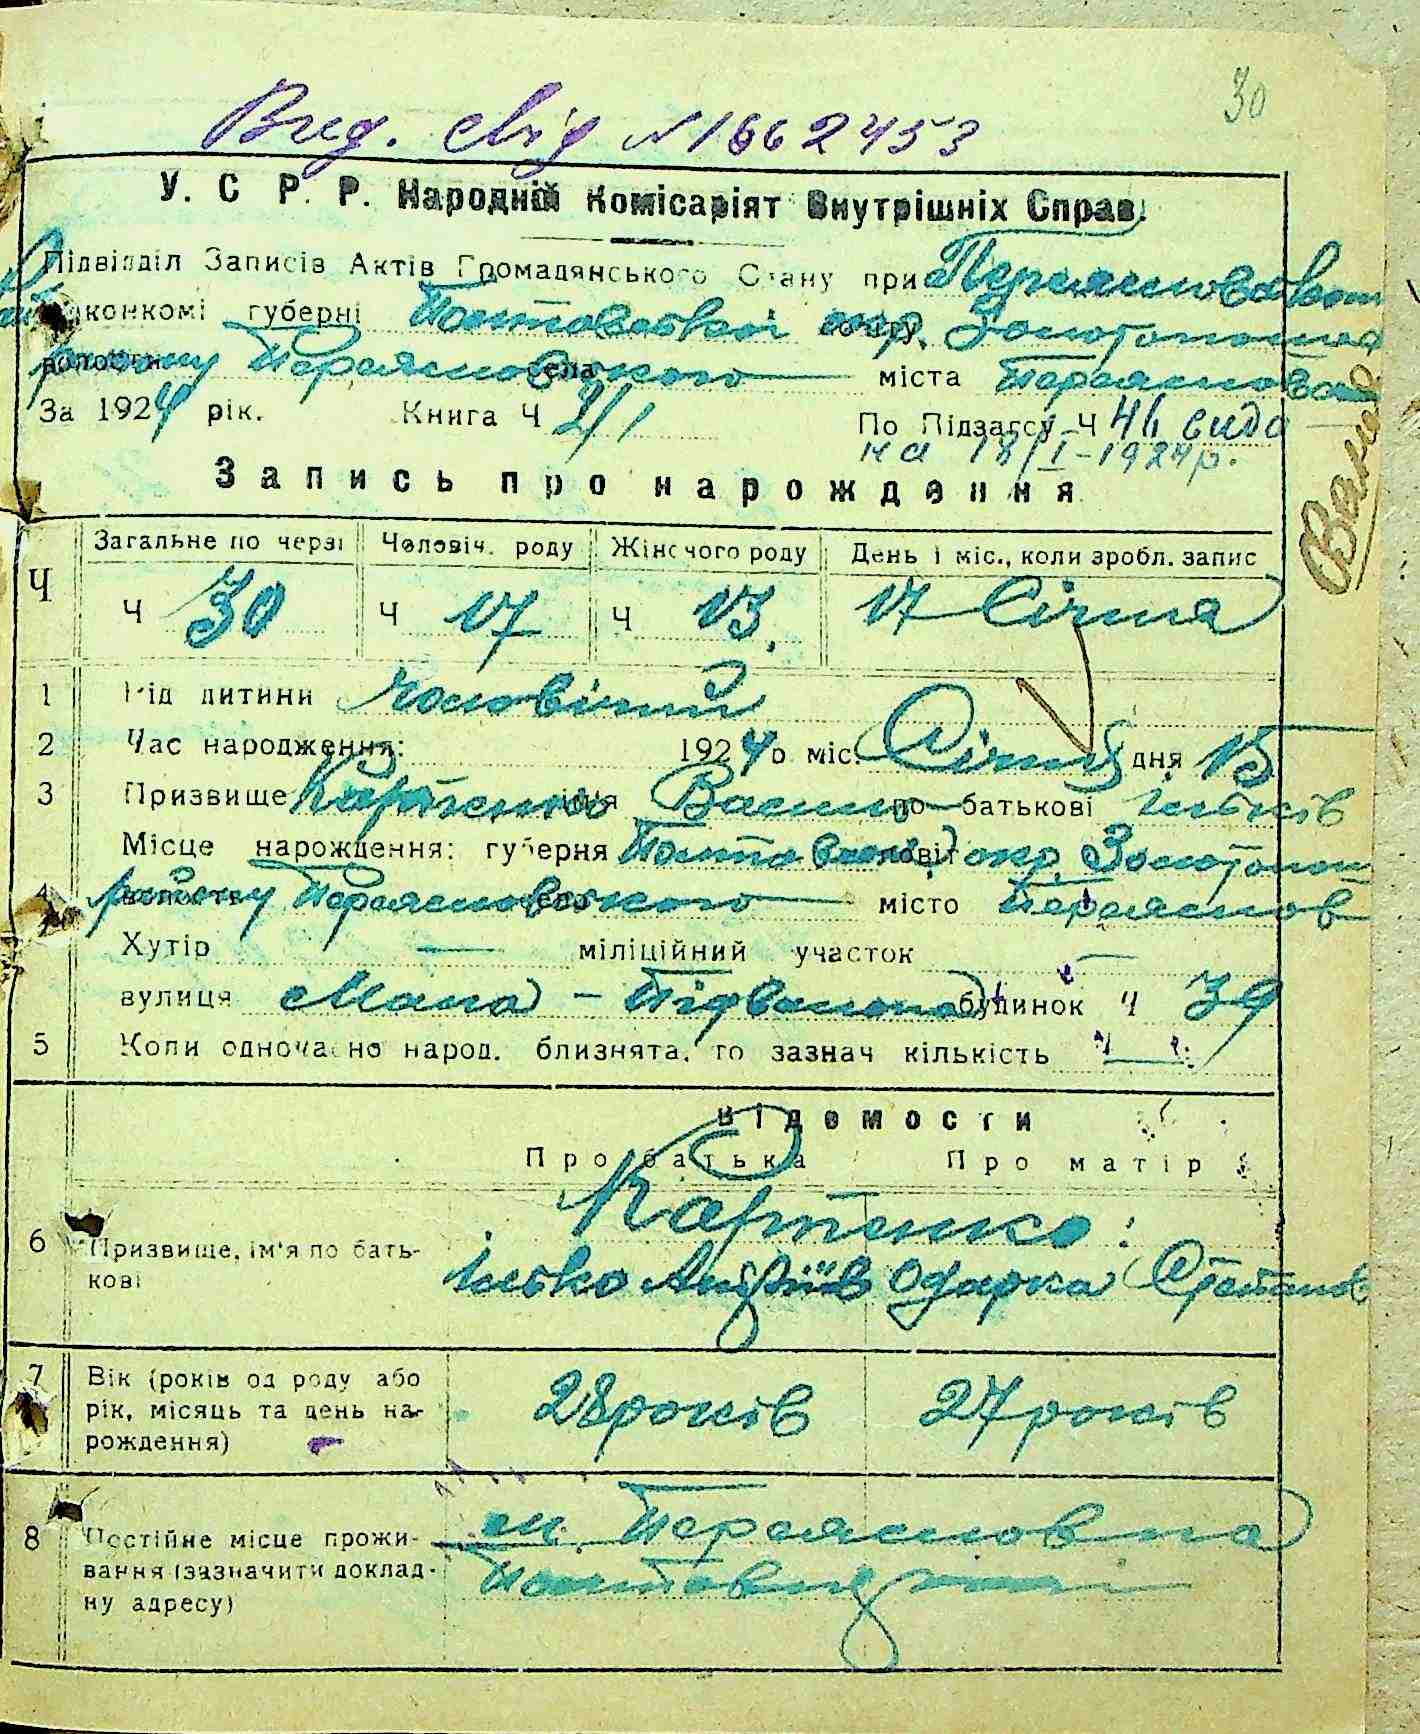 30
Вид. свід N 1662453
У. С Р. Р. Народній Комісаріят Внутрішніх Справ.
Підвідділ Записів Актів Громадянського Стану при Переяславском
конкомі губерні Полтавської окр. Золотонош
району Переяславського міста Переяслова
За 1924 рік. Книга Ч 2/1 По Підзагсу Ч
на 18/I-1924р.
Ваня
Запись про народження
Ч Загальне по черзі Чоловіч. роду Жіночого роду День і міс., коли зробл. запис
Ч 30 Ч 17 Ч 13, 17 Січня
1 Рід дитини чоловічий
2 Час народження: 1924 о міс. Січня дня 15
3 Призвище Карпенко імя Василь по батькові Ільків
Місце нарождення: губерня Полтавської повіт окр. Золотонош
4 району Переяславського місто Переяслов
Хутір — міліційний участок —
вулиця Мала - Підвальна будинок Ч 39
5 Коли одночасно народ. близнята, то зазнач кількість
Відомости
Про батька Про матір
Карпенко:
6 Призвище, ім'я по батькові Ілько Андріїв Одарка Степанов
7 Вік (років од роду або рік, місяць та день народження) 28 років 27 років
8 Постійне місце проживання (зазначити докладну адресу) м. Переяслов на
Полтавщині